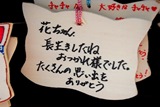 花ちゃん
長生きしたね
おつかれ様でした。
たくさんの思い出を
ありがとう